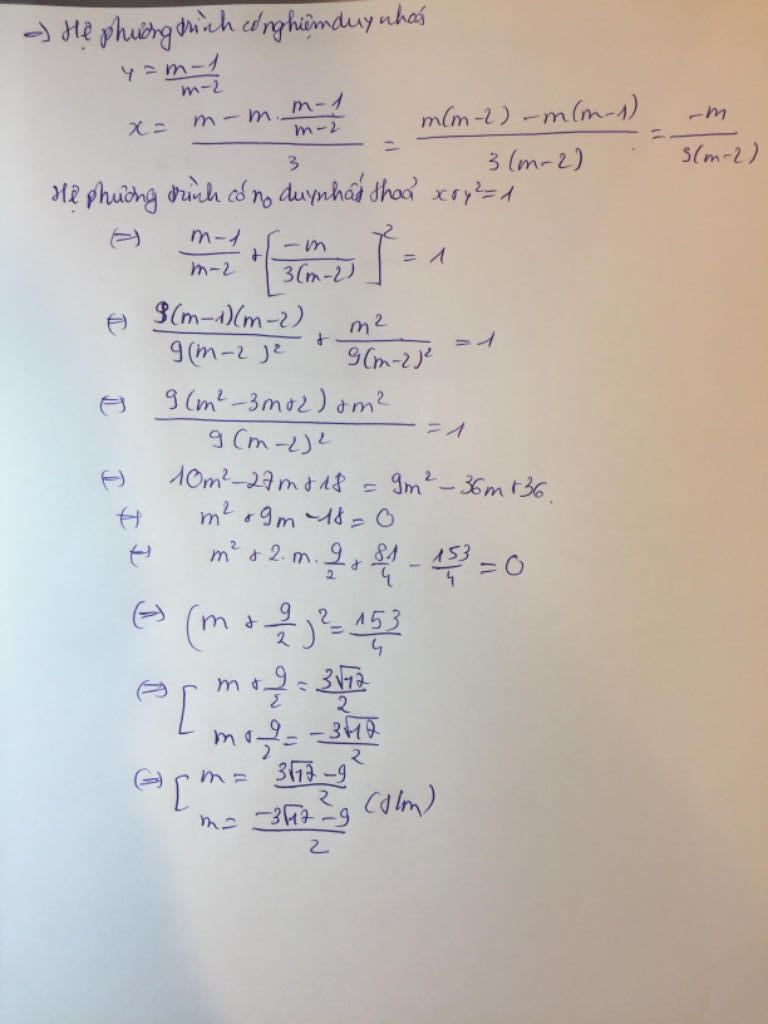 => Hệ phương trình có nghiệm duy nhất
y = \frac{m-1}{m-2}
x = \frac{m - m \cdot \frac{m-1}{m-2}}{3} = \frac{m(m-2) - m(m-1)}{3(m-2)} = \frac{-m}{3(m-2)}
Hệ phương trình có no duy nhất thoả x + y² = 1
<=> \frac{m-1}{m-2} + \left[\frac{-m}{3(m-2)}\right]^2 = 1
<=> \frac{9(m-1)(m-2)}{9(m-2)^2} + \frac{m^2}{9(m-2)^2} = 1
<=> \frac{9(m^2 - 3m + 2) + m^2}{9(m-2)^2} = 1
<=> 10m² - 27m + 18 = 9m² - 36m + 36.
<=> m² + 9m - 18 = 0
<=> m² + 2. m. \frac{9}{2} + \frac{81}{4} - \frac{153}{4} = 0
<=> (m + \frac{9}{2})² = \frac{153}{4}
<=> [ m + \frac{9}{2} = \frac{3\sqrt{17}}{2}
m + \frac{9}{2} = \frac{-3\sqrt{17}}{2}
<=> [ m = \frac{3\sqrt{17} - 9}{2}
m = \frac{-3\sqrt{17} - 9}{2} (t/m)